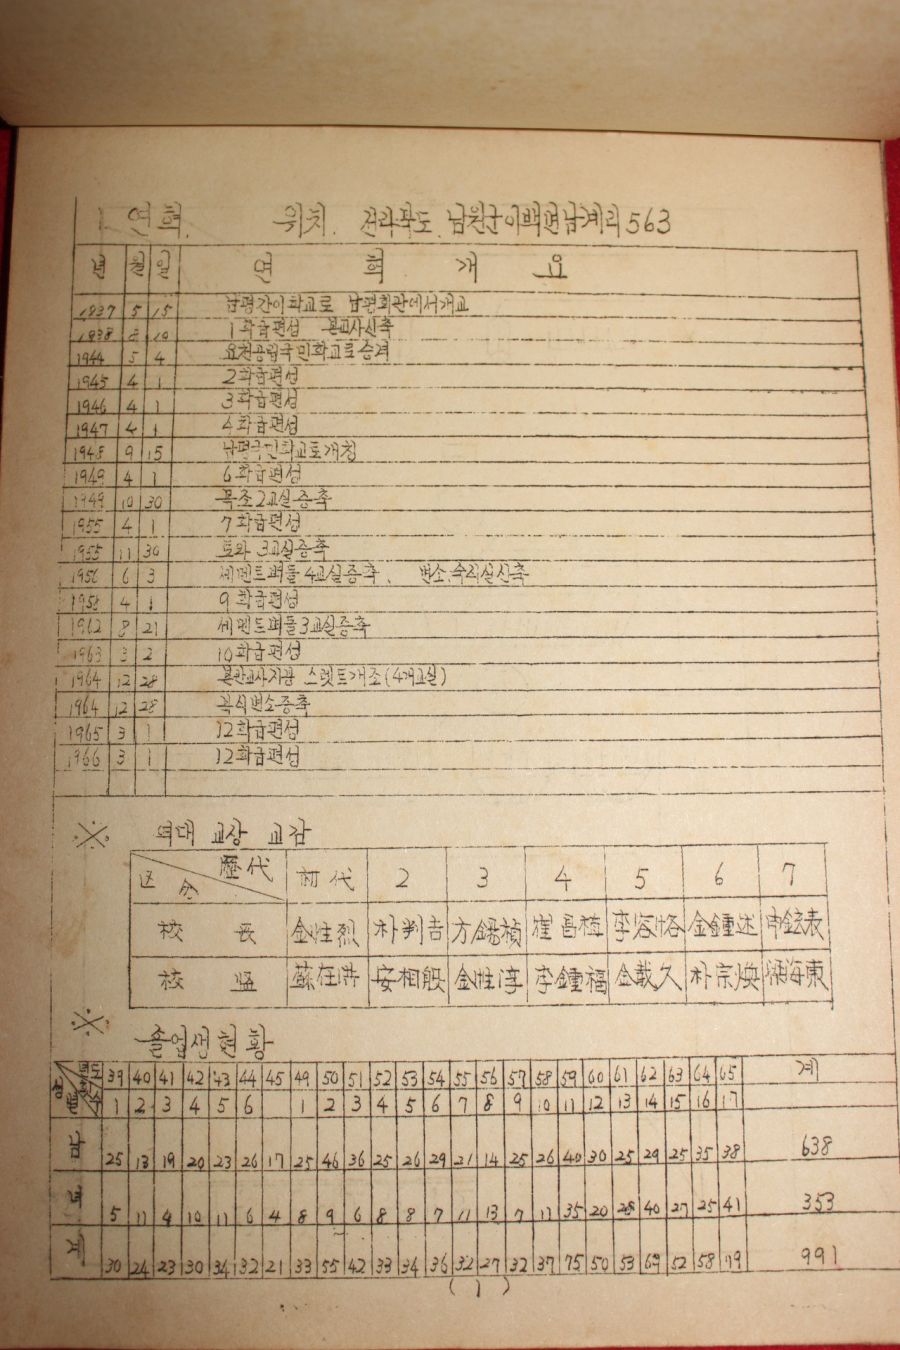 1. 연혁. 위치. 전라북도 남원군이백면남계리 563
년 월 일 연 혁 개 요
1937 5 15 남평간이학교로 남평회관에서개교
1938 10 1학급편성 본교사신축
1944 5 4 요천공립국민학교로승격
1945 4 1 2학급편성
1946 4 1 3학급편성
1947 4 1 4학급편성
1948 9 15 남평국민학교로개칭
1949 4 1 6학급편성
1949 10 30 목조2교실증축
1955 4 1 7학급편성
1955 11 30 토와 3교실증축
1956 6 3 세멘트벽돌 4교실증축. 변소.숙직실신축
1958 4 1 9학급편성
1962 8 21 세멘트벽돌3교실증축
1963 3 2 10학급편성
1964 12 28 본관교사지붕 스렛트개조(4개교실)
1964 12 28 변소증축
1965 3 1 12학급편성
1966 3 1 12학급편성
※ 역대 교장 교감
区分 歷代 初代 2 3 4 5 6 7
校長 金性烈 朴判吉 方錫禎 崔昌植 李容 金鍾述 申鉉表
校監 蘇在洪 安相殷 金性淳 李鍾福 金載久 朴宗煥 海東
※ 졸업생현황
년도 39 40 41 42 43 44 45 49 50 51 52 53 54 55 56 57 58 59 60 61 62 63 64 65 계
1 2 3 4 5 6 1 2 3 4 5 6 7 8 9 10 11 12 13 14 15 16 17
남 25 13 19 20 23 26 17 25 46 36 25 26 29 21 14 25 26 40 30 25 29 25 35 38 638
녀 5 11 4 10 11 6 4 8 9 6 8 8 7 11 13 7 11 35 20 28 40 27 25 41 353
계 30 24 23 30 34 32 21 33 55 42 33 34 36 32 27 32 37 75 50 53 69 52 58 79 991
( 1 )